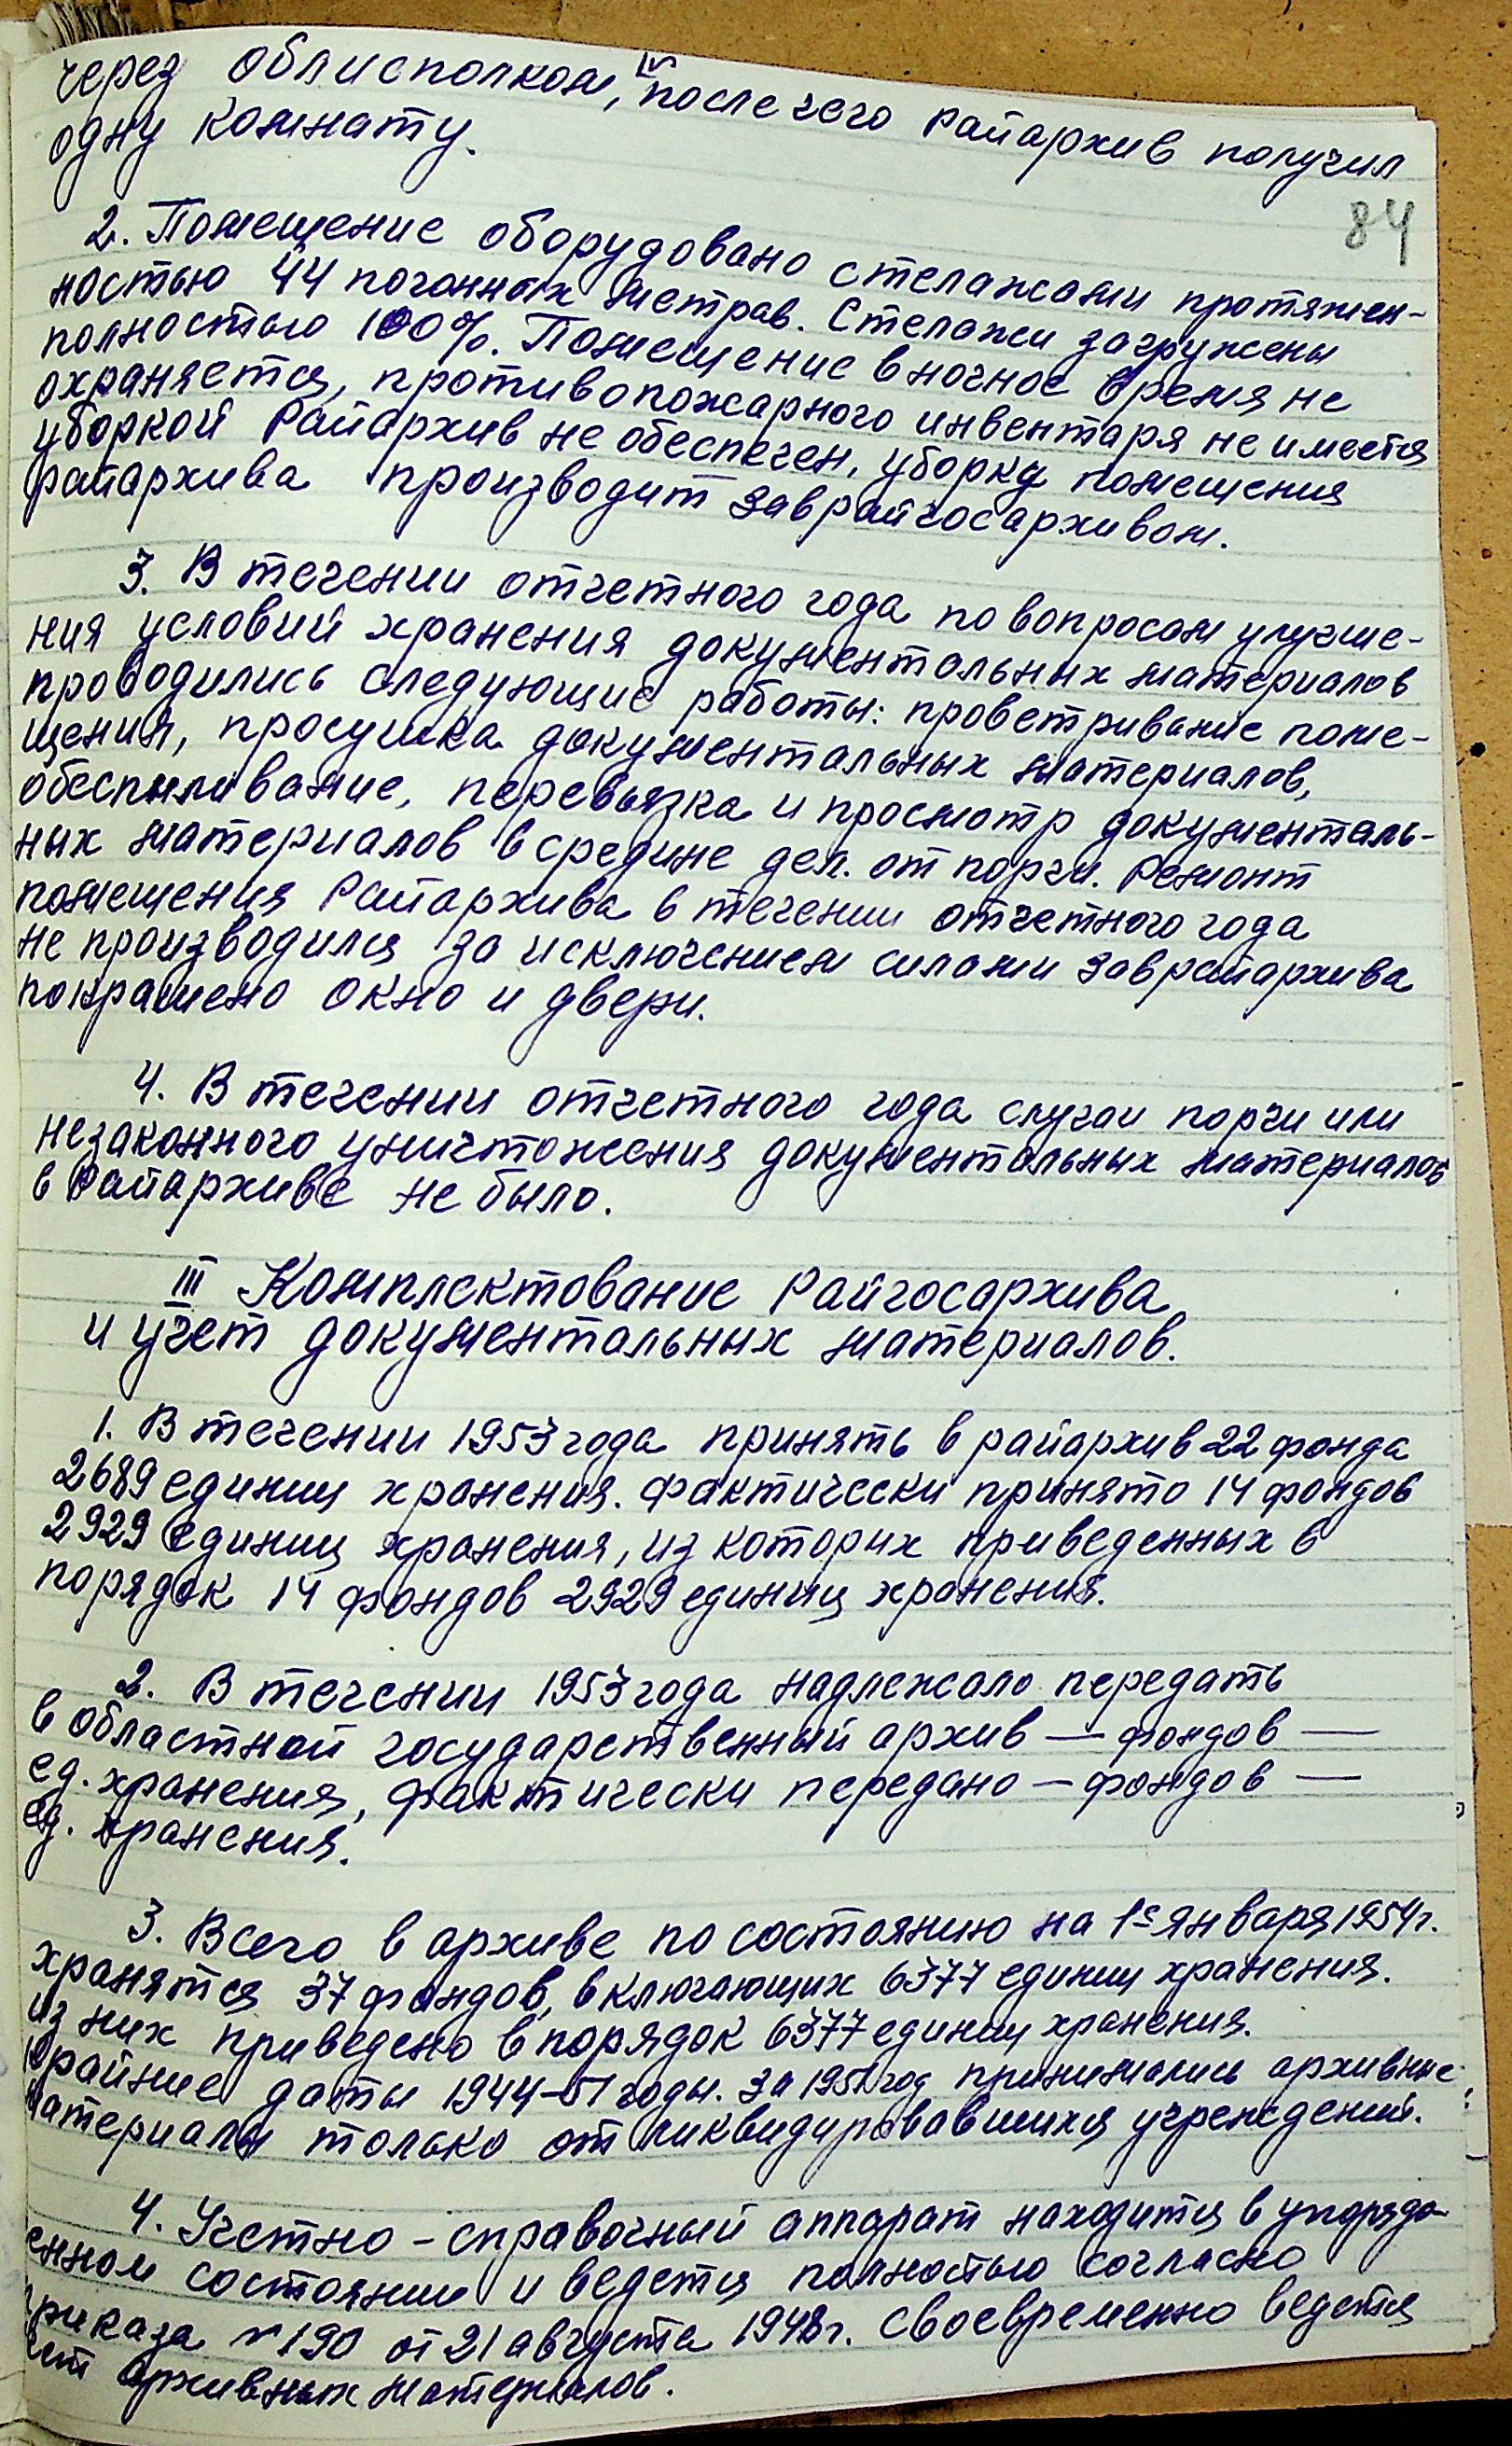 через облисполком, после чего райархив получил
одну комнату.
84
2. Помещение оборудовано стелажами протяжен-
ностью 44 погонных метрав. Стелажи загружены
полностью 100%. Помещение в ночное время не
охраняется, противопожарного инвентаря не имеется
уборкой Райархив не обеспечен, уборку помещения
райархива производит заврайгосархивом.
3. В течении отчетного года по вопросам улучше-
ния условий хранения документальных материалов
проводились следующие работы: проветривание поме-
щения, просушка документальных материалов,
обеспыливание, перевязка и просмотр документаль-
ных материалов в средине дел. от порчи. Ремонт
помещения Райархива в течении отчетного года
не производился за исключением силами заврайархива
покрашено окно и двери.
4. В течении отчетного года случаи порчи или
незаконного уничтожения документальных материалов
в Райархиве не было.
III Комплектование Райгосархива
и учет документальных материалов.
1. В течении 1953 года принять в райархив 22 фонда
2689 единиц хранения. Фактически принято 14 фондов
2929 единиц хранения, из которых приведенных в
порядок 14 фондов 2929 единиц хранения.
2. В течении 1953 года надлежало передать
в областной государственный архив — фондов —
ед. хранения, фактически передано — фондов —
ед. хранения.
3. Всего в архиве по состоянию на 1е января 1954г.
хранятся 37 фондов, включающих 6377 единиц хранения.
из них приведено в порядок 6377 единиц хранения.
крайние даты 1944-51 годы. За 1951 год принимались архивные
материалы только от ликвидировавшихся учреждений.
4. Учетно-справочный аппарат находится в упорядо-
енном состоянии и ведется полностью согласно
приказа №190 от 21 августа 1948г. Своевременно ведется
чет архивных материалов.